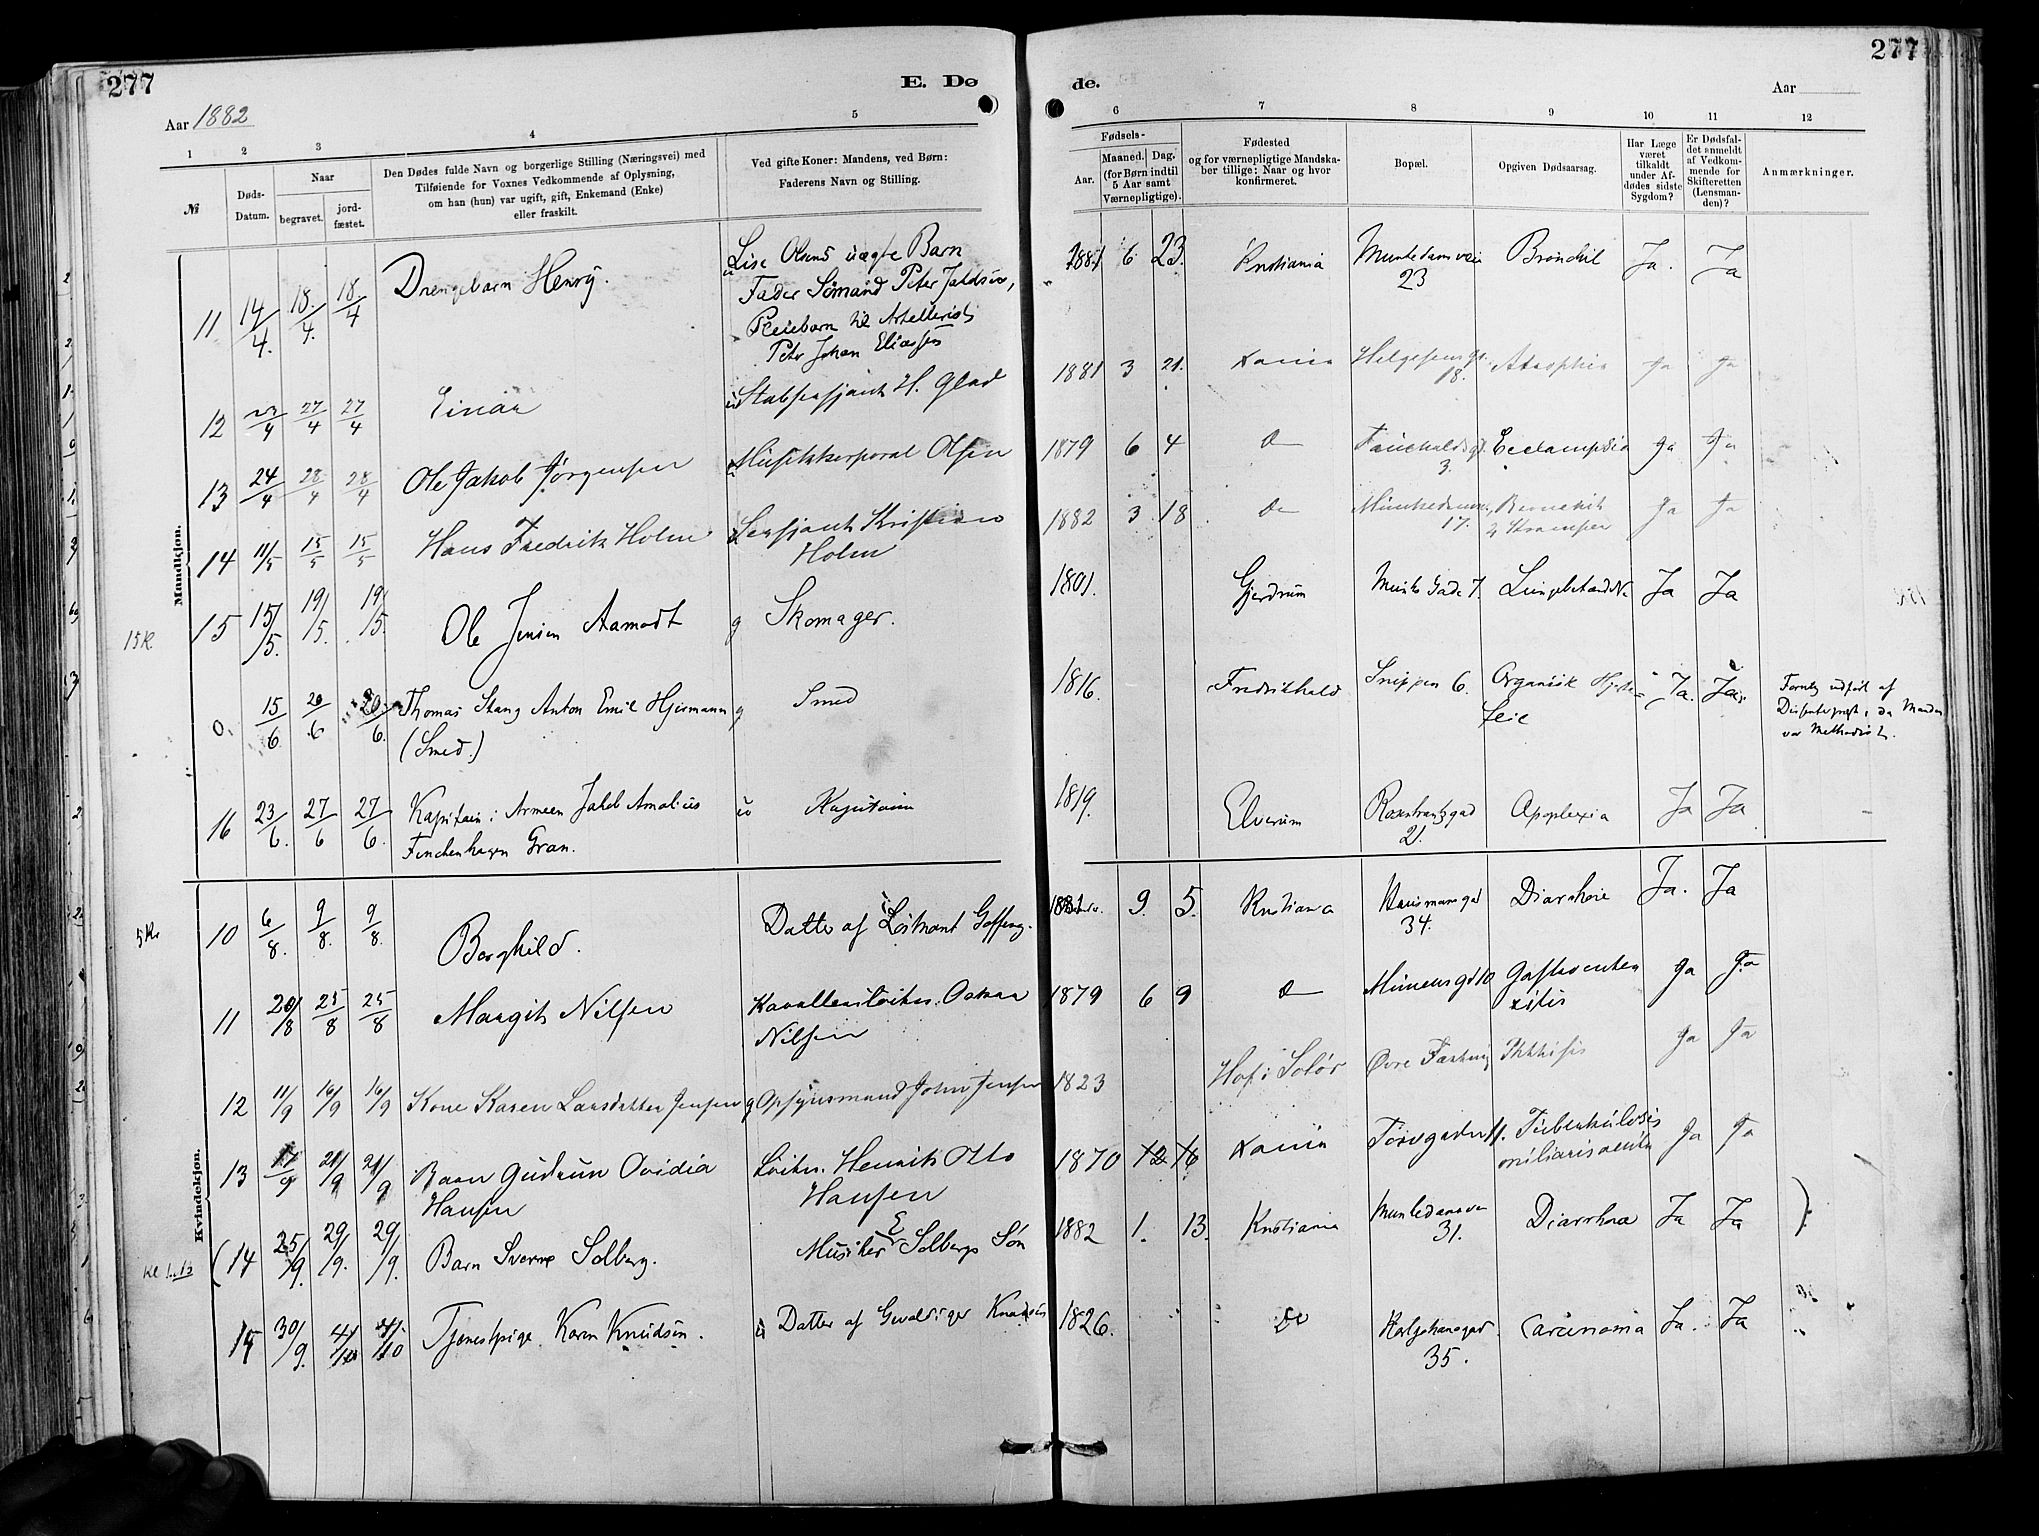 277
E. Dø
de.
277
Aar 1882
Aar
1 2 3 4 5 6 7 8 9 10 11 12
№
Døds-
Datum.
Naar
begravet.
jord-
fæstet.
Den Dødes fulde Navn og borgerlige Stilling (Næringsvei) med
Tilføiende for Voxnes Vedkommende af Oplysning,
om han (hun) var ugift, gift, Enkemand (Enke)
eller fraskilt.
Ved gifte Koner: Mandens, ved Børn:
Faderens Navn og Stilling.
Fødsels-
Aar.
Maaned. Dag.
(for Børn indtil
5 Aar samt
Værnepligtige).
Fødested
og for værnepligtige Mandska-
ber tillige: Naar og hvor
konfirmeret.
Bopæl.
Opgiven Dødsaarsag.
Har Læge
været
tilkaldt
under Af-
dødes sidste
Sygdom?
Er Dødsfal-
det anmeldt
af Vedkom-
mende for
Skifteretten
(Lensman-
den)?
Anmærkninger.
Mandkjøn.
11 14/4. 18./4. 18/4 Drengebarn Henry.
Lise Olsens uægte Barn
Fader Sømand Peter
Pleiebarn til Artellerist
Peter Johan Eliassen
6 23. Kristiania Munkedamsvei
23
Ja. Ja
12 27/4 27/4 Einar
H. Glad
1881 3 21. Xania Helgesensgd.
18.
Ja Ja
13 24/4 28/4 28/4 Ole Jakob Jørgensen
Musikkorporal Olsen
1879 6 4 Do
3.
Eclampsia Ja Ja
14 11/5 15/5 15/5 Hans Fredrik Holm
Sersjant Kristian
Holm
1882 3 18 Do
17.
Ja Ja
Kramper
15 Kr.
15 15/5. 19/5. 19/5. Ole Jensen Aamodt g Skomager.
1801. Gjerdrum Munks Gade 7. Lungebetændelse Ja Ja
0. 15/6 20/6 20/6. Thomas Stang Anton Emil Hjermann g Smed
(Smed.)
1816. Fredrikhald Snippen 6. Organisk Hjerte-
feil
Ja. Ja.
Forretn. udført af
Dissenterpræst, da Manden
var Methodist.
16 23/6. 27/6 27/6. Kapitain i Armeen Jakob Amalius
Finckenhagen Gran.
u Kapitain
1819. Elverum Rosenkrantzgad
21.
Apoplexia Ja Ja
Kvindekjøn.
5 Kr
10 6/8. 9/8. 9/8. Borghild.
Datter af Løitnant
1881 9. 5. Kristiania Hausmansgad
34.
Diarrhoe Ja. Ja
11 20/8 25/8 25/8 Margit Nilsen
Oskar
Nilsen
1879 6 9 Do Gastroenter
itis
Ja Ja
12 11/9 16/9 16/9 Kone Karen Larsdatter Jensen g Opsynsmand John Jensen
1823 Hof i Solør Øvre Phthisis Ja Ja
13 21/9 21/9 Barn Gudrun Ovidia
Hansen
Løitn. Henrik Otto
Hansen
1870 12 16 Xania Torvgaden 11. Tuberkulosis
miliaris acuta
Ja Ja
Kl 1
(14 25/9. 29/9. 29/9. Barn Sverre Solberg.
Musiker E Solbergs Søn
1882 1. 13. Kristiania Munkedamsvei
31.
Diarrhoea Ja Ja )
15 30/9. 4/10 4/10 Tjenestpige Karen Knudsen.
u Datter af Gevaldiger Knudsen
1826. Do Karljohansgad.
35.
Carcinoma Ja. Ja